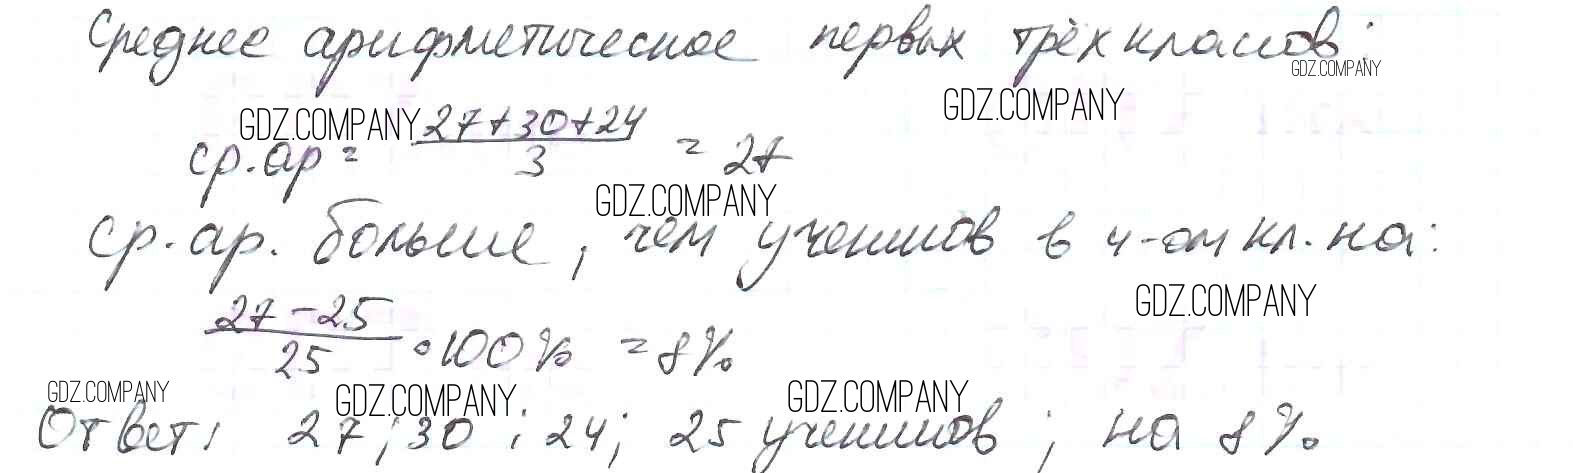 Среднее арифметическое первых трёх классов:
GDZ.COMPANY
GDZ.COMPANY
GDZ.COMPANY
ср.ар = (27+30+24)/3 = 27
GDZ.COMPANY
ср.ар. больше, чем учеников в 4-ом кл. на:
GDZ.COMPANY
(27-25)/25 • 100% = 8%
GDZ.COMPANY
GDZ.COMPANY
GDZ.COMPANY
Ответ: 27; 30; 24; 25 учеников; на 8%